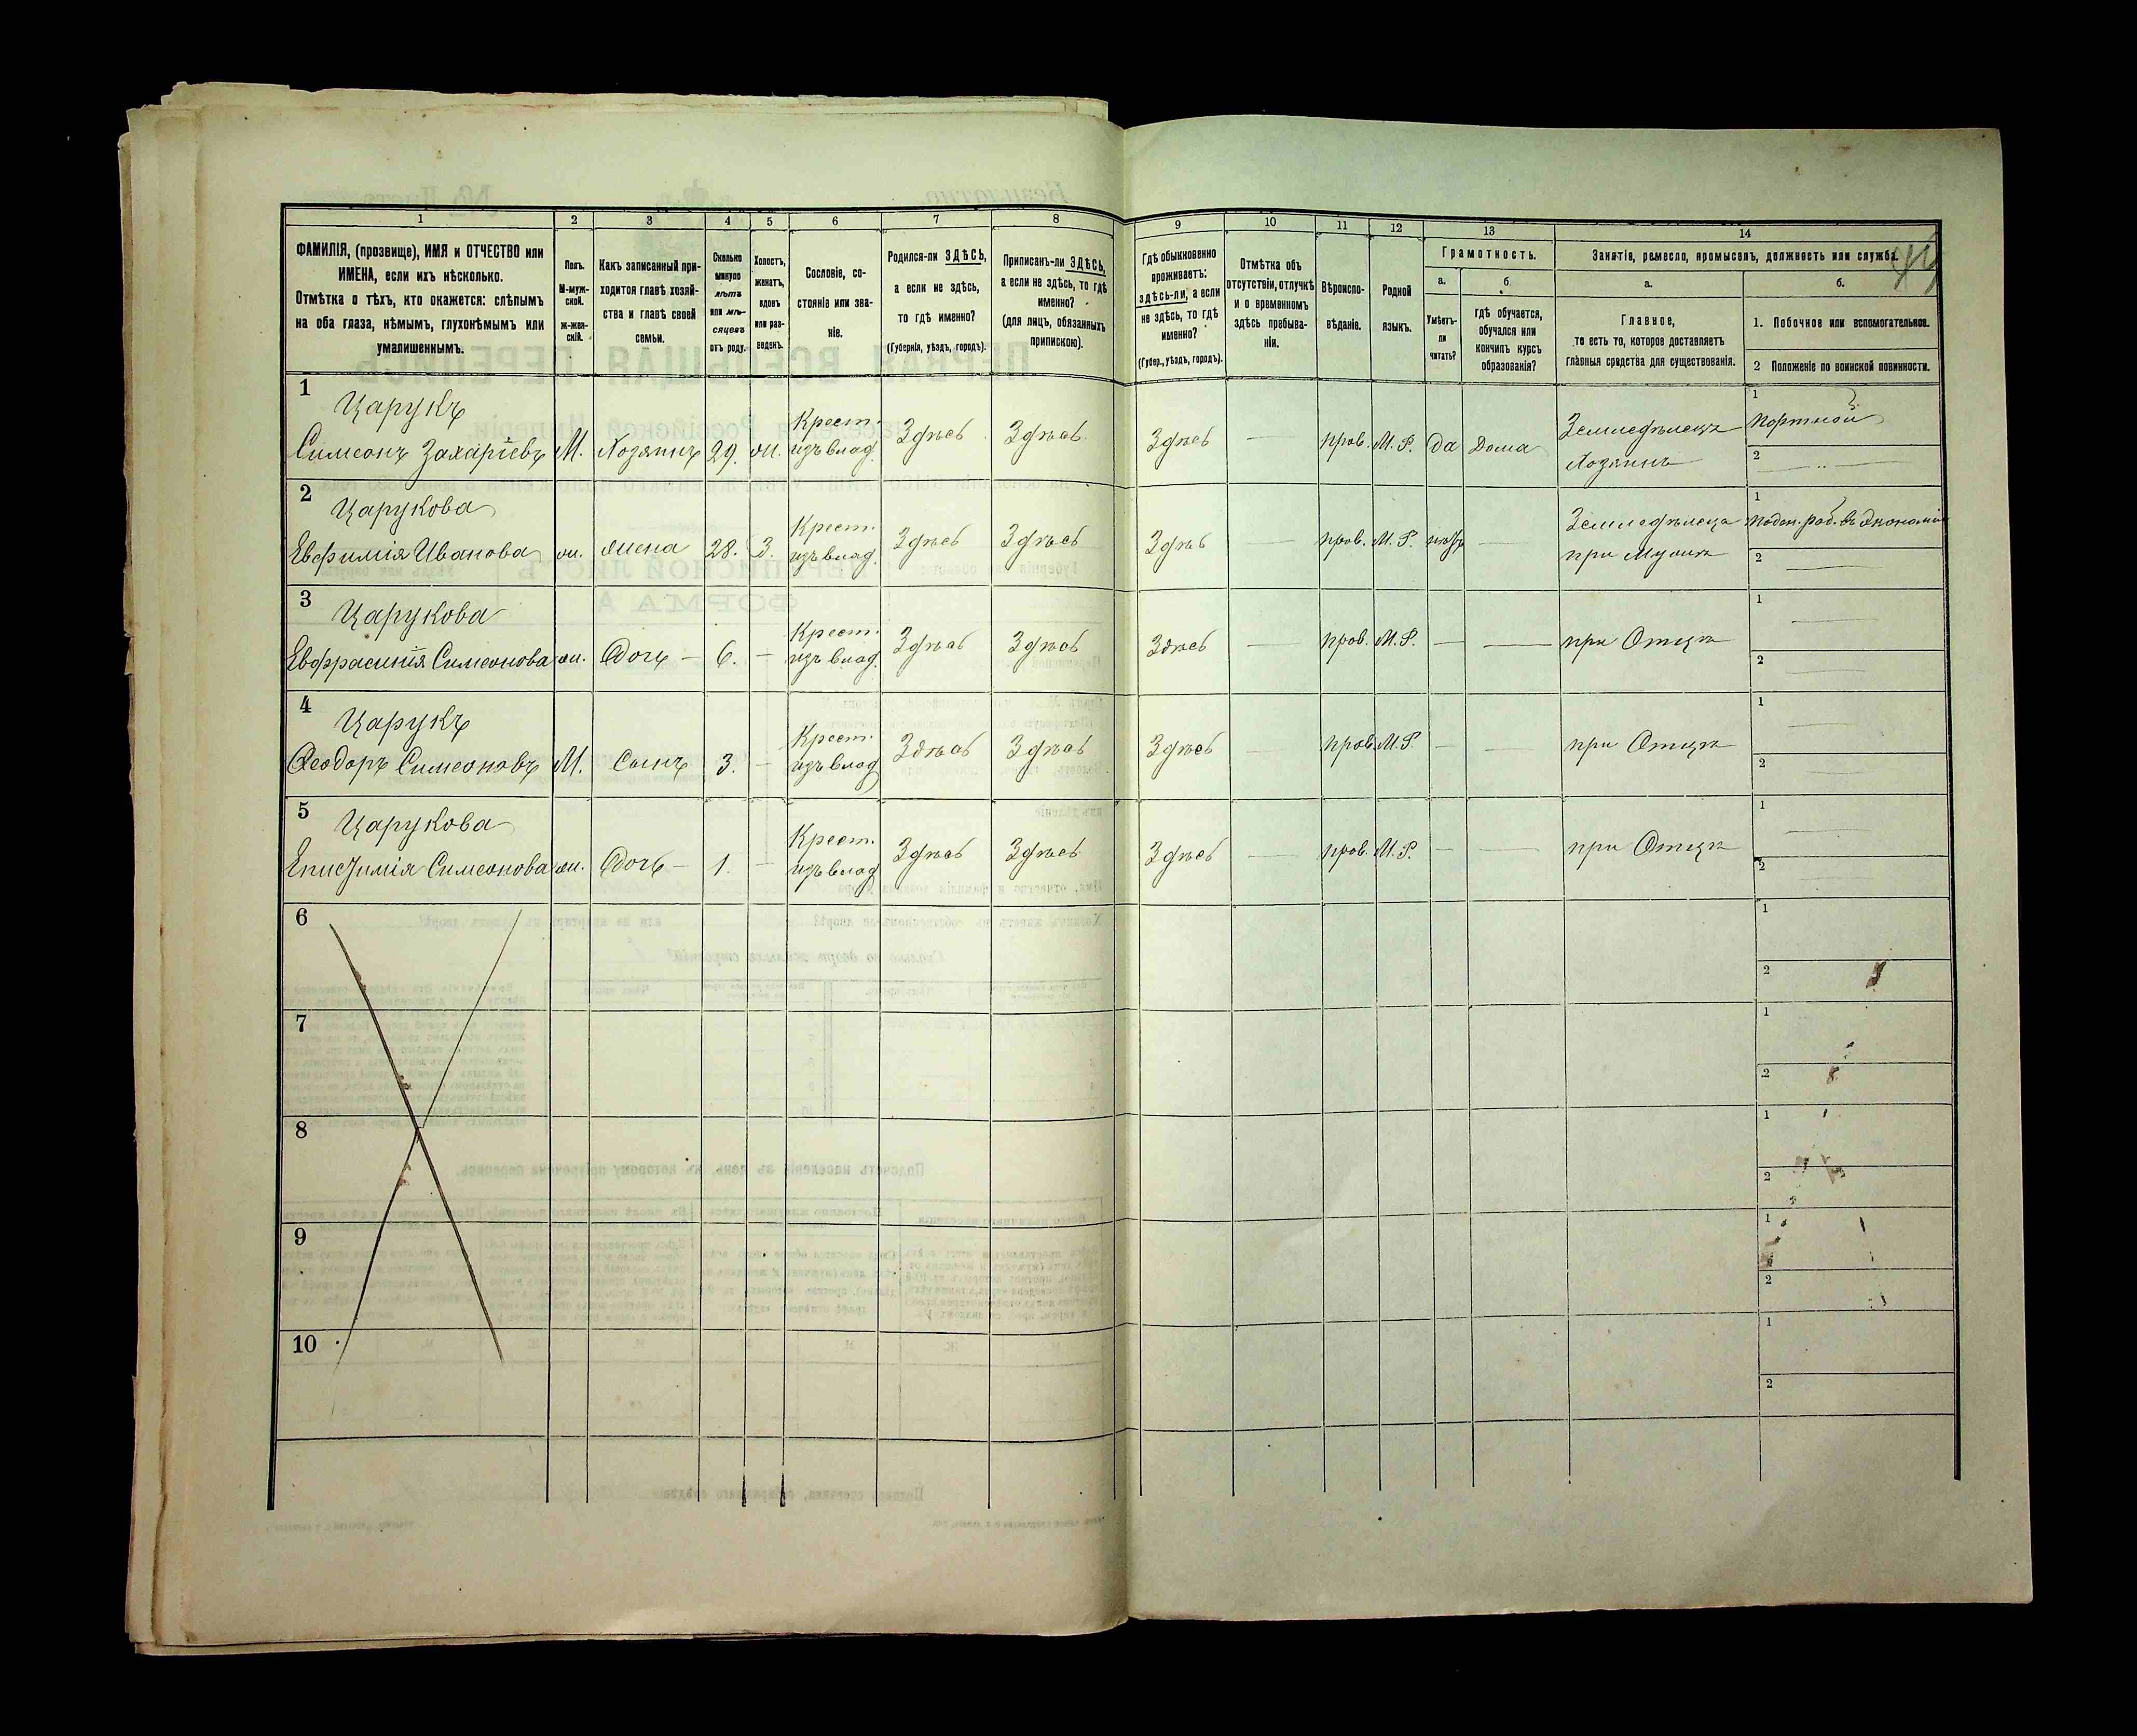 1 2 3 4 5 6 7 8 9 10 11 12 13 14
ФАМИЛІЯ, (прозвище), ИМЯ и ОТЧЕСТВО или
ИМЕНА, если ихъ нѣсколько.
Отмѣтка о тѣхъ, кто окажется: слѣпымъ
на оба глаза, нѣмымъ, глухонѣмымъ или
умалишеннымъ.
Полъ.
М-муж-
ской.
ж-жен-
скій.
Какъ записанный при-
ходится главѣ хозяй-
ства и главѣ своей
семьи.
Сколько
минуло
лѣтъ
или мѣ-
сяцевъ
отъ роду.
Холостъ,
женатъ,
вдовъ
или раз-
веденъ.
Сословіе, со-
стояніе или зва-
ніе.
Родился-ли ЗДѢСЬ,
а если не здѣсь,
то гдѣ именно?
(Губернія, уѣздъ, городъ).
Приписанъ-ли ЗДѢСЬ,
а если не здѣсь, то гдѣ
именно?
(для лицъ, обязанныхъ
припискою).
Гдѣ обыкновенно
проживаетъ:
здѣсь-ли, а если
не здѣсь, то гдѣ
именно?
(Губер., уѣздъ, городъ).
Отмѣтка объ
отсутствіи, отлучкѣ
и о временномъ
здѣсь пребыва-
ніи.
Вѣроиспо-
вѣданіе.
Родной
языкъ.
Грамотность.
а.
Умѣетъ-
ли
читать?
б.
гдѣ обучается,
обучался или
кончилъ курсъ
образованія?
Занятіе, ремесло, промыселъ, должность или служба.
а.
Главное,
то есть то, которое доставляетъ
главныя средства для существованія.
б.
1. Побочное или вспомогательное.
2 Положеніе по воинской повинности.
1
Царукъ
Симеонъ Захаріевъ М. Хозяинъ 29. ж.
Крест.
изъ влад.
Здѣсь Здѣсь Здѣсь — прав. М. Р. да Дома
Земледѣлецъ
Хозяинъ
1 Портной
2
2
Царукова
Евфимія Иванова ж. жена 28. З.
Крест.
изъ влад.
Здѣсь Здѣсь Здѣсь — прав. М. Р. —
Земледѣлецъ
при Мужѣ
1 Поден. раб. въ Экономіи
2
3
Царукова
Евфрасинія Симеонова ж. Дочь — 6. —
Крест.
изъ влад.
Здѣсь Здѣсь Здѣсь — прав. М. Р. — — при Отцѣ
1
2
4
Царукъ
Феодоръ Симеоновъ М. Сынъ 3. —
Крест.
изъ влад
Здѣсь Здѣсь Здѣсь — прав. М. Р. — — при Отцѣ
1
2
5
Царукова
Симеонова ж. Дочь — 1. —
Крест.
изъ влад
Здѣсь Здѣсь Здѣсь — прав. М. Р. — — при Отцѣ
1
2
6
1
2
7
1
2
8
1
2
9
1
2
10
1
2